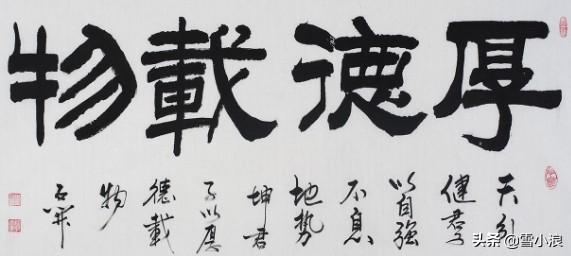 厚德載物
天行
健君子
以自強
不息
地勢
坤君
子以厚
德載
物
石開
头条@雪小浪